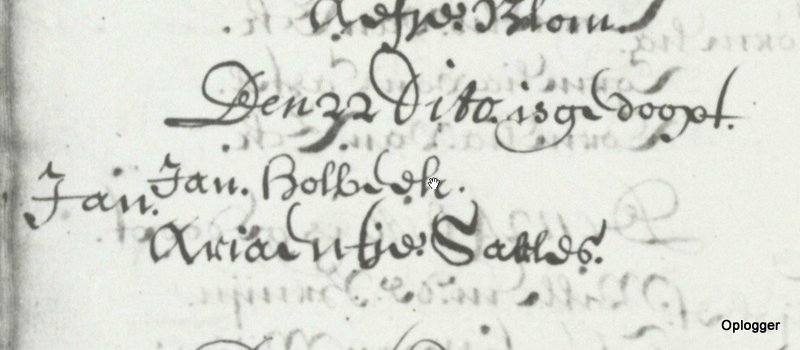 Aefje Blom.
Den 22 Dito is gedoopt.
Jan. Jan. Holbeek.
Ariaentje Sakles.
Oplogger